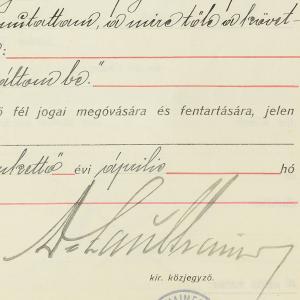 mutattam, a mire tőle a követ-
:
áltom be."
ő fél jogai megóvására és fentartására, jelen
nkettő évi április hó
Dr
kir. közjegyző.